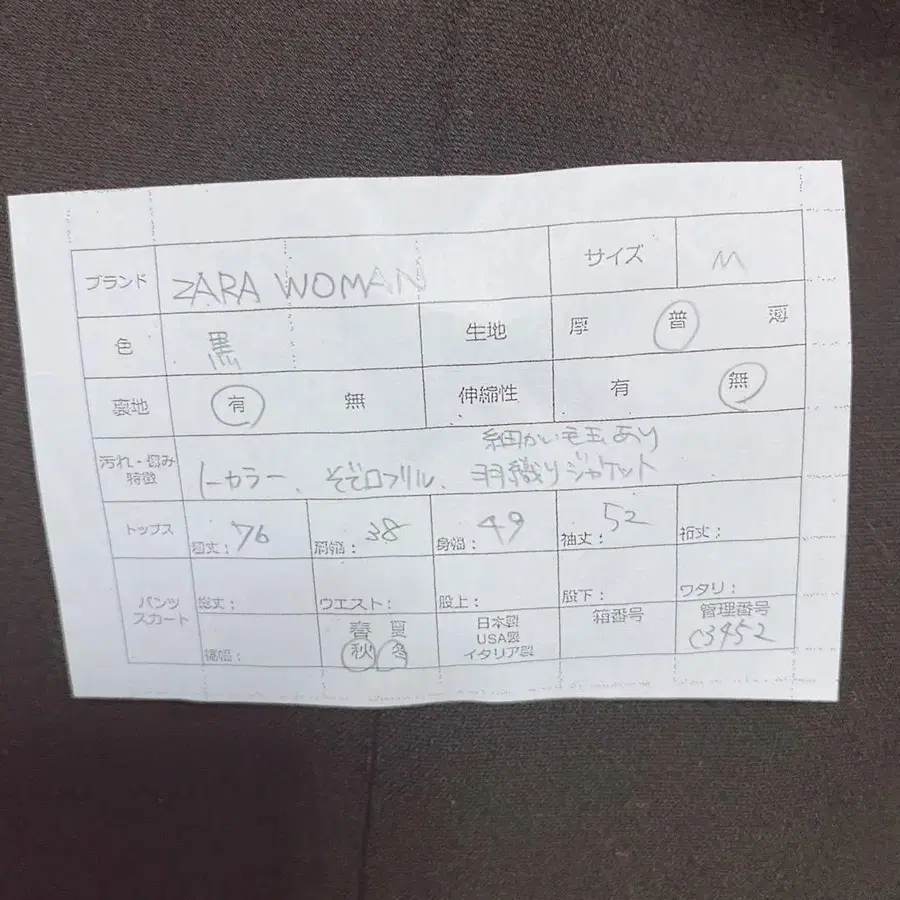 ブランド ZARA WOMAN サイズ M
色 黒 生地 厚 普 薄
裏地 有 無 伸縮性 有 無
細かい毛玉あり
汚れ・傷み
特徴
ノーカラー、そぞ口フリル、羽織りジャケット
トップス 着丈: 76 肩幅: 38 身幅: 49 袖丈: 52 裄丈:
パンツ
スカート
総丈: ウエスト: 股上: 股下: ワタリ:
裾幅:
春 夏
秋 冬
日本製
USA製
イタリア製
箱番号
管理番号
C3452